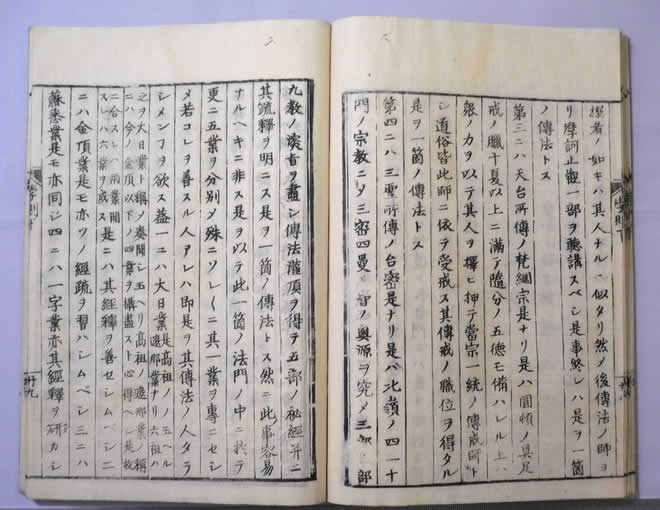 者ノ如キハ其人ナルニ似タリ然〆後傳法ノ師ヨ
リ摩訶止觀一部ヲ聽講スベシ是事終レハ是ヲ一箇
ノ傳法トス
第三ニハ天台所傳ノ梵網宗是ナリ是ハ圓頓ノ具足
戒ノ臘十夏以上ニ滿テ隨分ノ五德モ備ハレル上ハ
衆ノ力ヲ以テ其人ヲ擇ヒ押テ當宗一統ノ傳戒師ト
シ道俗皆此師ニ依テ受戒ス其傳戒ノ職位ヲ得タル
是ヲ一箇ノ傳法トス
第四ニハ三重所傳ノ台密是ナリ是ハ北嶺ノ四一十
門ノ宗教ニ〆三密四曼五智ノ奥源ヲ究メ三部
九教ノ旨ヲ盡シ傳法灌頂ヲ得テ五部ノ祕經并ニ
其疏釋ヲ明ニス是ヲ一箇ノ傳法トス然ニ此事容易
ナルヘキニ非ス是ヲ以テ此一箇ノ法門ノ中ニ於テ
更ニ五業ヲ分別〆殊ニソレ〱ニ其一業ヲ專ニセシ
メ若コレヲ善スル人アレハ即是ヲ其傳法ノ人タラ
シメンヿヲ欲ス蓋一ニハ大日業
ニハ其經釋ヲ善セシムベシ二
ニハ金頂業是モ亦ソノ經疏ヲ習ハシムベシ三ニハ
蘇悉業是モ亦同シ四ニハ一字業亦其經釋ヲ研カシ
卅九